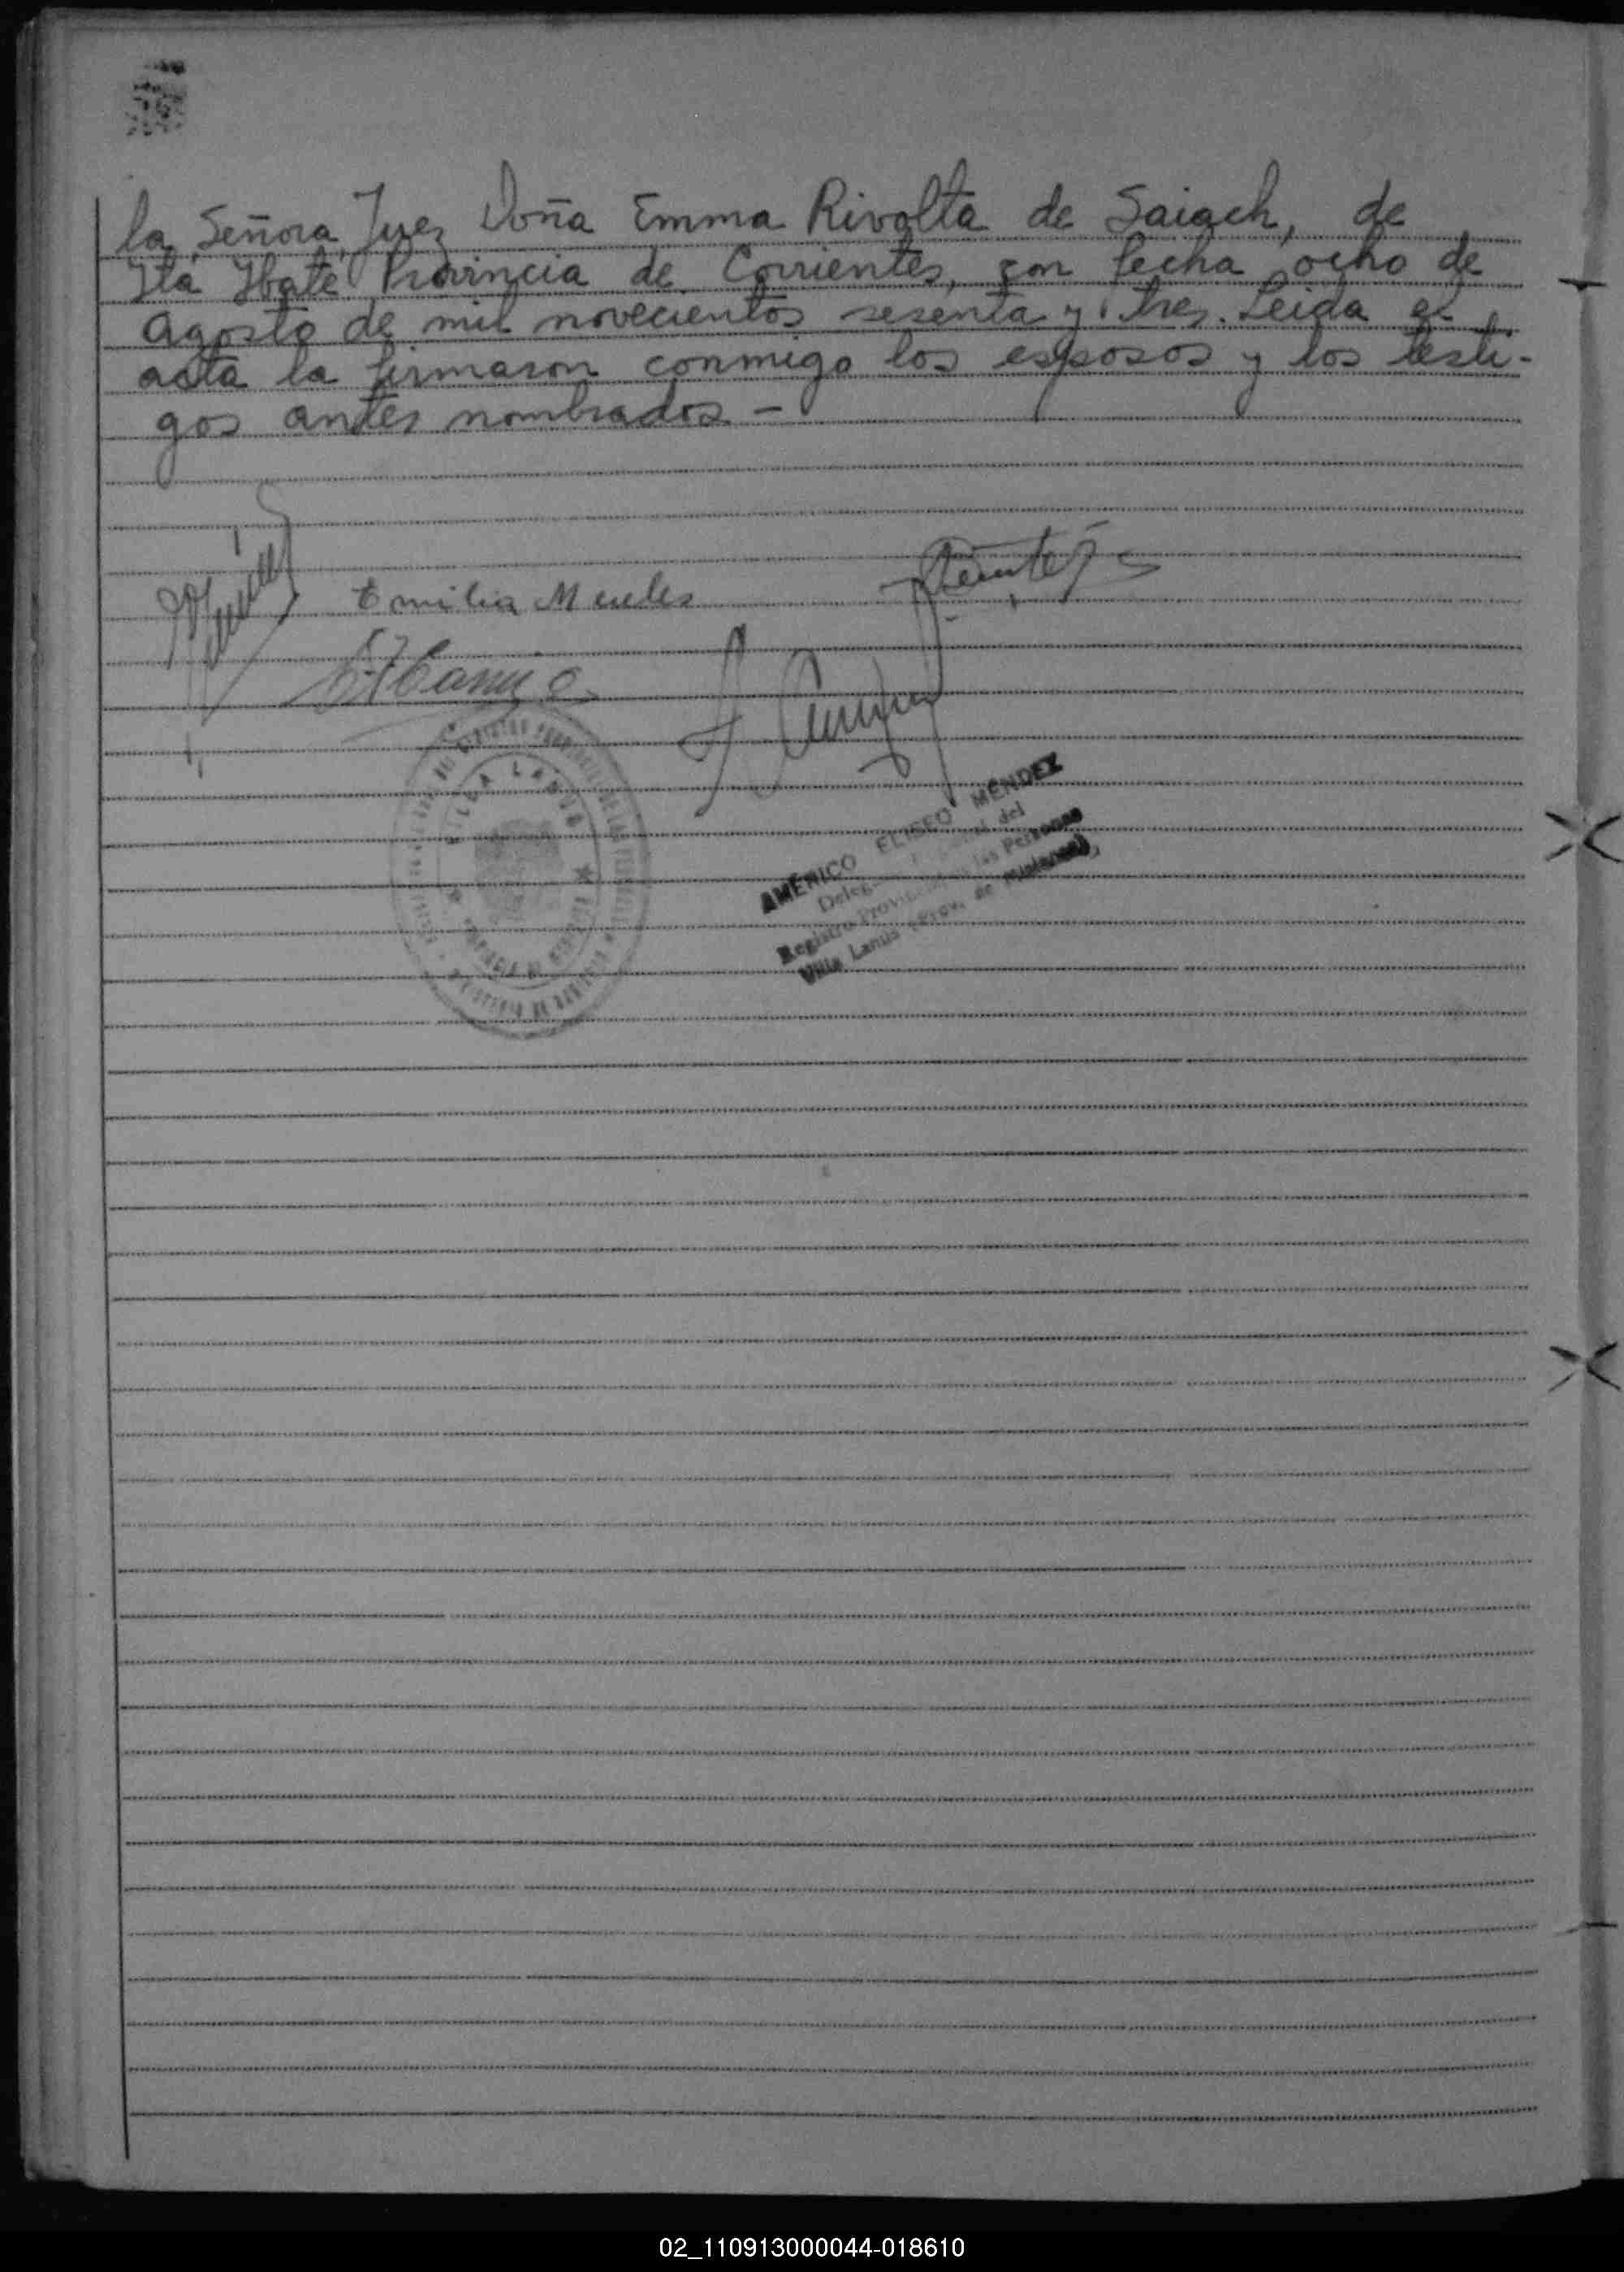 la Señora Juez Doña Emma Rivolta de Saiach, de
Itá Ibaté Provincia de Corrientes, con fecha ocho de
Agosto de mil novecientos sesenta y tres. Leida el
acta la firmaron conmigo los esposos y los testi-
gos antes nombrados -
Emilia Meeles
VILLA LANUS
AMÉRICO ELISEO MÉNDEZ
del
Registro Provincial de las Personas
Villa Lanús (Prov. de Misiones)
02_110913000044-018610